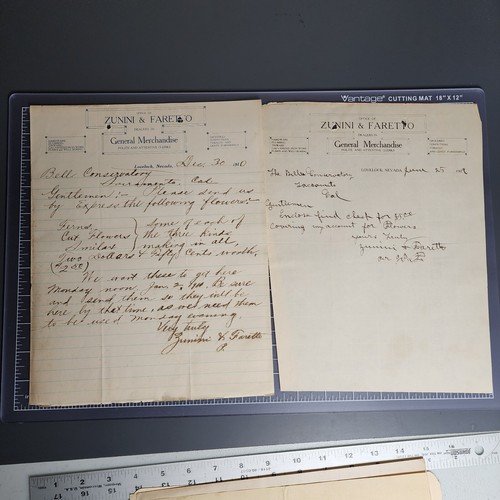 Vantage® CUTTING MAT 18" X 12"
OFFICE OF
ZUNINI & FARETTO
DEALERS IN
General Merchandise
POLITE AND ATTENTIVE CLERKS
Lovelock, Nevada, Dec. 30
Bell Conservatory
Sacramento, Cal.
Gentlemen:- Please send us
by Express the following flowers:-
Ferns
Cut Flowers
Smilax
some of each of
the three kinds
making in all,
Two Dollars & Fifty Cents worth.
(2.50)
We want these to get here
Monday, noon, Jan. 2, Be sure
and send them so they will be
here by that time, as we need them
to be used Monday evening.
Very truly
Zunini & Faretto
OFFICE OF
ZUNINI & FARETTO
DEALERS IN
General Merchandise
POLITE AND ATTENTIVE CLERKS
LOVELOCK, NEVADA, June 25
The Bell Conservatory
Sacramento
Cal
Gentlemen
Enclose find check for
covering my account for Flowers
yours truly
Zunini & Faretto